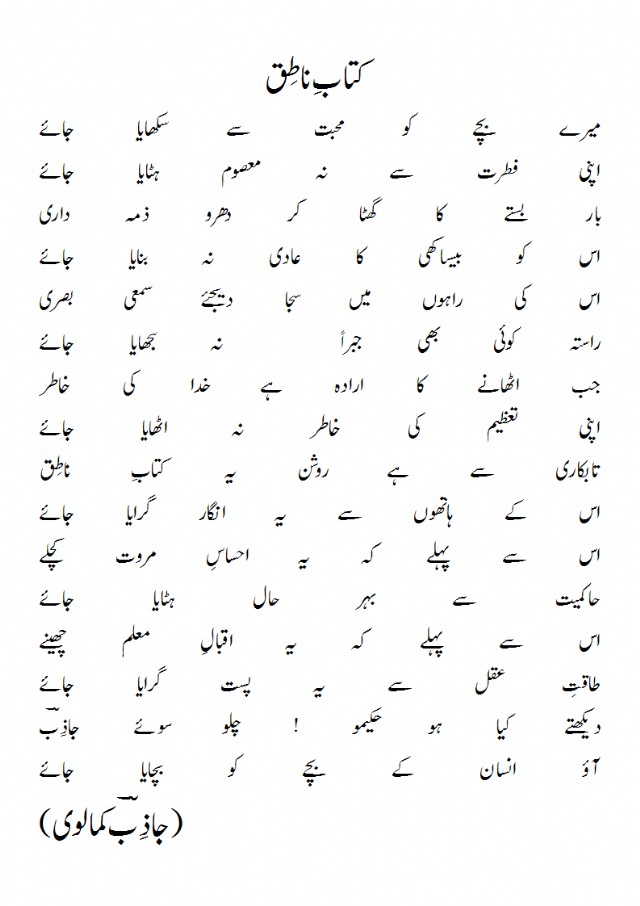 کتابِ ناطِق
میرے بچے کو محبت سے سکھایا جائے
اپنی فطرت سے نہ معصوم ہٹایا جائے
بار بستے کا گھٹا کر دھرو ذمہ داری
اس کو بیساکھی کا عادی نہ بنایا جائے
اس کی راہوں میں سجا دیجئے سمعی بصری
راستہ کوئی بھی جبراً نہ سجھایا جائے
جب اٹھانے کا ارادہ ہے خدا کی خاطر
اپنی تعظیم کی خاطر نہ اٹھایا جائے
تابکاری سے ہے روشن یہ کتابِ ناطِق
اس کے ہاتھوں سے یہ انگار گرایا جائے
اس سے پہلے کہ یہ احساسِ مروت کچلے
حاکمیت سے بہر حال ہٹایا جائے
اس سے پہلے کہ یہ اقبالِ معلم چھینے
طاقتِ عقل سے یہ پست گرایا جائے
دیکھتے کیا ہو حکیمو ! چلو سوئے جاذِبؔ
آؤ انسان کے بچے کو بچایا جائے
(جاذِبؔ کمالوی)